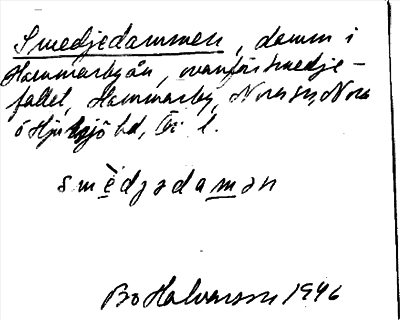 Smedjedammen, damm i
Hammarbyån, ovanför Smedje-
fallet, Hammarby, Nora sn, Nora
o Hjulsjö bd, Ör. l.
smèdjədamən
Bo Halvarsson 1946